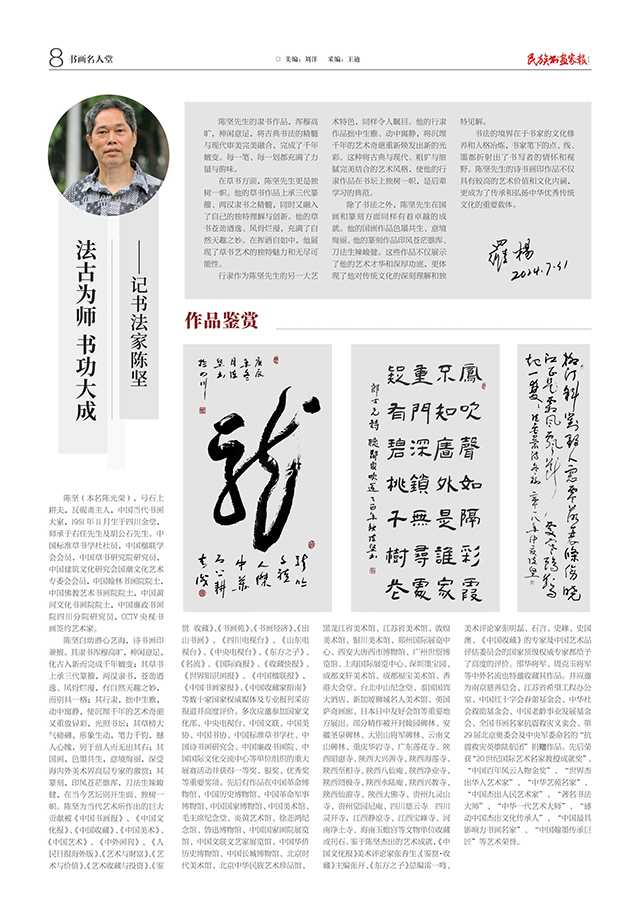 8 书画名人堂
□ 美编：刘洋 采编：王迪
民族书画家报
法古为师 书功大成
——记书法家陈坚
陈坚先生的隶书作品，浑穆高
旷，神闲意足，将古典书法的精髓
与现代审美完美融合，完成了千年
嬗变。每一笔、每一划都充满了力
量与韵味。
在草书方面，陈坚先生更是独
树一帜。他的草书作品上承三代篆
籀、两汉隶书之精髓，同时又融入
了自己的独特理解与创新。他的草
书苍劲遒逸、风骨烂漫，充满了自
然天趣之妙。在挥洒自如中，他展
现了草书艺术的独特魅力和无尽可
能性。
行隶作为陈坚先生的另一大艺
术特色，同样令人瞩目。他的行隶
作品拙中生雅、动中寓静，将沉埋
千年的艺术奇葩重新焕发出新的光
彩。这种将古典与现代、粗犷与细
腻完美结合的艺术风格，使他的行
隶作品在书坛上独树一帜，是后辈
学习的典范。
除了书法之外，陈坚先生在国
画和篆刻方面同样有着卓越的成
就。他的国画作品色墨共生、意境
绚丽。他的篆刻作品印风苍茫雄浑、
刀法生辣峻健。这些作品不仅展示
了他的艺术才华和深厚功底，更体
现了他对传统文化的深刻理解和独
特见解。
书法的境界在于书家的文化修
养和人格冶炼，书家笔下的点、线、
墨都折射出了书写者的情怀和视
野。陈坚先生的诗书画印作品不仅
具有较高的艺术价值和文化内涵，
更成为了传承和弘扬中华优秀传统
文化的重要载体。
2024.7.31
作品鉴赏
龙
凤吹声如隔彩霞
不知墙外是谁家
重门深锁无寻处
疑有碧桃千树花
郎士元诗
陈坚（本名陈光荣），号石上
耕夫，瓦砚斋主人，中国当代书画
大家，1951年11月生于四川金堂，
师承于石任先生及胡公石先生。中
国标准草书学社社员，中国楹联学
会会员，中国草书研究院研究员，
中国建筑文化研究会国潮文化艺术
专委会会员，中国翰林书画院院士，
中国佛教艺术书画院院士，中国黄
河文化书画院院士，中国廉政书画
院四川分院研究员，CCTV央视书
画签约艺术家。
陈坚自幼潜心艺海，诗书画印
兼擅。其隶书浑穆高旷，神闲意足，
化古入新而完成千年嬗变；其草书
上承三代篆籀，两汉隶书，苍劲遒
逸，风骨烂漫，有自然天趣之妙，
而别具一格；其行隶，拙中生雅，
动中寓静，使沉埋千年的艺术奇葩
又重放异彩，光照书坛；其草榜大
气磅礴，形象生动，笔力千钧，撼
人心魄，列于前人而无出其右；其
国画，色墨共生，意境绚丽，深受
海内外美术界高层专家的激赏；其
篆刻，印风苍茫雄浑，刀法生辣峻
健，在当今艺坛别开生面，独树一
帜。陈坚为当代艺术所作出的巨大
贡献被《中国书画报》、《中国文
化报》、《中国收藏》、《中国美术》、
《中国艺术》、《中外画刊》、《人
民日报海外版》、《艺术与财富》、《艺
术与价值》、《艺术收藏与投资》、《鉴
赏 收藏》、《书画苑》、《书画经济》、《出
山书画》、《四川电视台》、《山东电
视台》、《中央电视台》、《东方之子》、
《名流》、《国际商报》、《收藏快报》、
《世界知识画报》、《中国楹联报》、
《中国书画家报》、《中国收藏家指南》
等数十家国家权威媒体及专业报刊采访
报道并高度评价。多次应邀参加国家文
化部、中央电视台、中国文联、中国美
协、中国书协、中国标准草书学社、中
国诗书画研究会、中国廉政书画院、中
国国际文化交流中心等单位组织的重大
展赛活动并获得一等奖、银奖、优秀奖
等重要奖项。先后有作品在中国革命博
物馆、中国历史博物馆、中国革命军事
博物馆、中国国家博物馆、中国美术馆、
毛主席纪念堂、炎黄艺术馆、徐悲鸿纪
念馆、鲁迅博物馆、中国国家画院展览
馆、中国文联文艺家展览馆、中国华侨
历史博物馆、中国长城博物馆、北京时
代美术馆、北京中华民族艺术珍品馆、
黑龙江省美术馆、江苏省美术馆、敦煌
美术馆、银川美术馆、郑州国际展览中
心、西安大唐西市博物馆、广州世贸博
览馆、上海国际展览中心、深圳墨宝园、
成都文轩美术馆、成都福宝美术馆、香
港大会堂、台北中山纪念堂、泰国国宾
大酒店、新加坡狮城名人美术馆、英国
萨奇画廊、日本日中友好会馆等重要地
方展出。部分精作被开封翰园碑林、安
徽圣泉碑林、大别山将军碑林、云南文
山碑林、重庆华岩寺、广东莲花寺、陕
西昭惠寺、陕西大兴善寺、陕西海莲寺、
陕西至相寺、陕西八仙庵、陕西净业寺、
陕西圆慢寺、陕西水陆庵、陕西兴教寺、
陕西仙游寺、陕西大佛寺、贵州九灵山
寺、贵州觉园尼庵、四川慈云寺 四川
灵开寺、江西静凉寺、江西宝峰寺、河
南净土寺、海南玉蟾宫等文物单位收藏
或刊石。鉴于陈坚杰出的艺术成就，《中
国文化报》美术评论家张春生、《鉴赏·收
藏》主编张开、《东方之子》总编雷一鸣、
美术评论家张明磊、石宫、史峰、史国
澳，《中国收藏》的专家及中国艺术品
评估委员会的国家顶级权威专家都给予
了高度的评价。邵华将军、周克玉将军
等中外名流也特邀收藏其作品。并应邀
为南京慈善总会、江苏省希望工程办公
室、中国红十字会春蕾基金会、中华社
会救助基金会、中国老龄事业发展基金
会、全国书画名家抗震救灾义卖会、第
29届北京奥委会及中央军委命名的“抗
震救灾英雄陆航团”捐赠作品。先后荣
获“20世纪国际艺术名家教授成就奖”、
“中国百年风云人物金奖”、“世界杰
出华人艺术家”、“中华艺苑名家”、
“中国杰出人民艺术家”、“著名书法
大师”、“中华一代艺术大师”、“感
动中国杰出文化传承人”、“中国最具
影响力书画名家”、“中国翰墨传承巨
匠”等艺术荣誉。